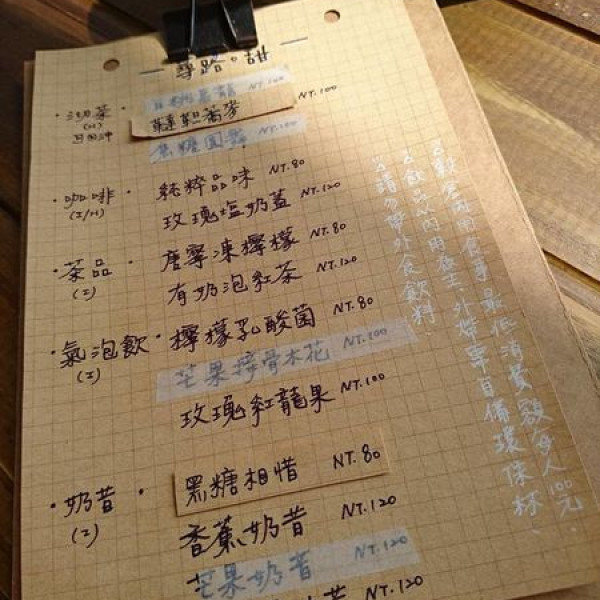 尋路。甜
NT.100
・沏茶・ 韃靼蕎麥 NT.100
(H)
可回沖
焦糖國寶 NT.100
・咖啡・ 純粹品味 NT.80
(I/H) 玫瑰塩奶蓋 NT.120
・茶品・ 唐寧凍檸檬 NT.80
(I) 有奶泡紅茶 NT.120
・氣泡飲・檸檬乳酸菌 NT.80
(I) 芒果接骨木花 NT.100
玫瑰紅龍果 NT.100
・奶昔・ 黑糖相惜 NT.80
(I) 香蕉奶昔 NT.120
芒果奶昔 NT.120
NT.120
內用食事最低消費額每人100元
飲品以內用為主，外帶需自備環保杯
請勿帶外食飲料